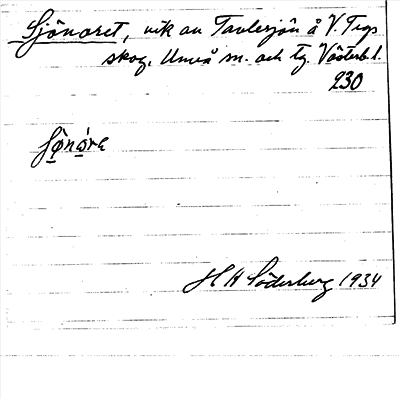 Sjönoret, vik av Tavlesjön å V. Tegs
skog, Umeå sn. och tg. Västerb. l.
230
Sjø̱nǿ̱ra
H H Söderberg 1934